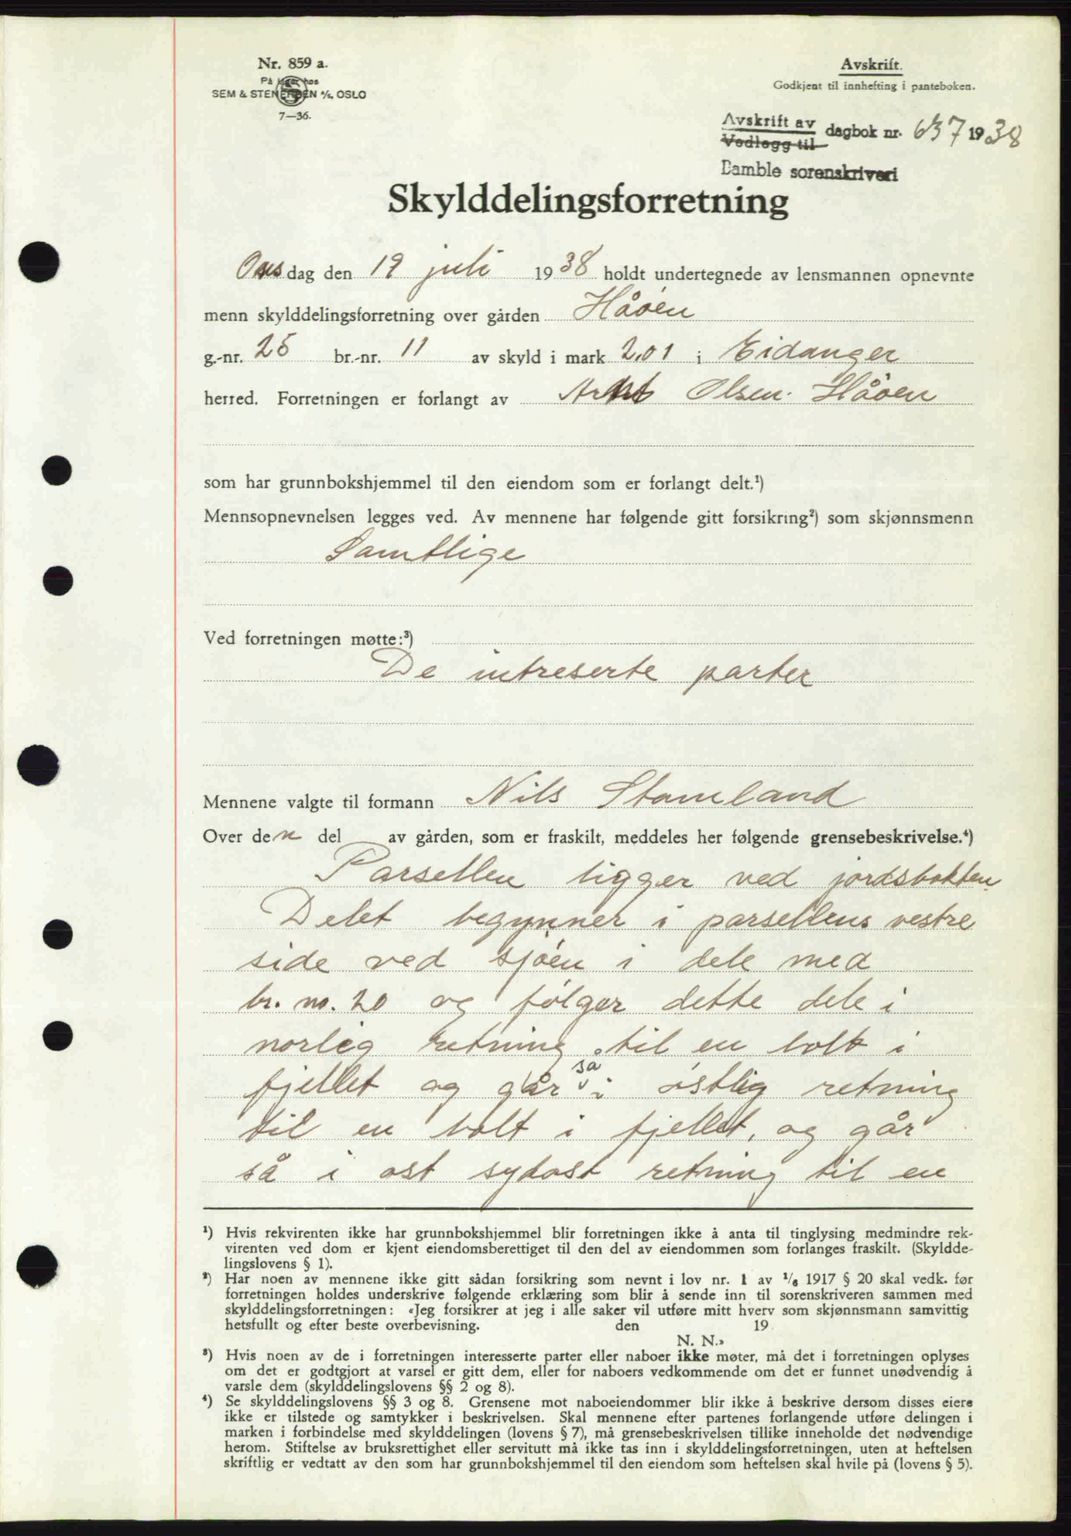 Nr. 859 a.
På lager hos
SEM & STENERSEN A/S, OSLO
7—36.
Avskrift.
Godkjent til innhefting i panteboken.
Avskrift av
Vedlegg til
dagbok nr. 637 1938
Bamble sorenskriveri
Skylddelingsforretning
Onsdag den 19 juli 1938 holdt undertegnede av lensmannen opnevnte
menn skylddelingsforretning over gården Håøen
g.-nr. 25 br.-nr. 11 av skyld i mark 2,01 i Eidanger
herred. Forretningen er forlangt av Arnt Olsen Håøen
som har grunnbokshjemmel til den eiendom som er forlangt delt.¹)
Mennsopnevnelsen legges ved. Av mennene har følgende gitt forsikring²) som skjønnsmenn
Samtlige
Ved forretningen møtte:³)
De intreserte parter
Mennene valgte til formann Nils Stamland
Over den del av gården, som er fraskilt, meddeles her følgende grensebeskrivelse.⁴)
Parsellen ligger ved jordsbakken
Delet begynner i parsellens vestre
side ved sjøen i dele med
br. no. 20 og følger dette dele i
norlig retning til en bolt i
fjellet og går så i østlig retning
til en bolt i fjellet, og går
så i ost sydost retning til en
¹) Hvis rekvirenten ikke har grunnbokshjemmel blir forretningen ikke å anta til tinglysing medmindre rek-
virenten ved dom er kjent eiendomsberettiget til den del av eiendommen som forlanges fraskilt. (Skyldde-
lingslovens § 1).
²) Har noen av mennene ikke gitt sådan forsikring som nevnt i lov nr. 1 av 1/6 1917 § 20 skal vedk. før
forretningen holdes underskrive følgende erklæring som blir å sende inn til sorenskriveren sammen med
skylddelingsforretningen: «Jeg forsikrer at jeg i alle saker vil utføre mitt hverv som skjønnsmann samvittig
hetsfullt og efter beste overbevisning. den 19
N. N.»
³) Hvis noen av de i forretningen interesserte parter eller naboer ikke møter, må det i forretningen oplyses
om det er godtgjort at varsel er gitt dem, eller for naboers vedkommende om det er funnet unødvendig å
varsle dem (skylddelingslovens §§ 2 og 8).
⁴) Se skylddelingslovens §§ 3 og 8. Grensene mot naboeiendommer blir ikke å beskrive dersom disses eiere
ikke er tilstede og samtykker i beskrivelsen. Skal mennene efter partenes forlangende utføre delingen i
marken i forbindelse med skylddelingen (lovens § 7), må grensebeskrivelsen tillike inneholde det nødvendige
herom. Stiftelse av bruksrettighet eller servitutt må ikke tas inn i skylddelingsforretningen, uten at heftelsen
skriftlig er vedtatt av den som har grunnbokshjemmel til den eiendom som heftelsen skal hvile på (lovens § 5).